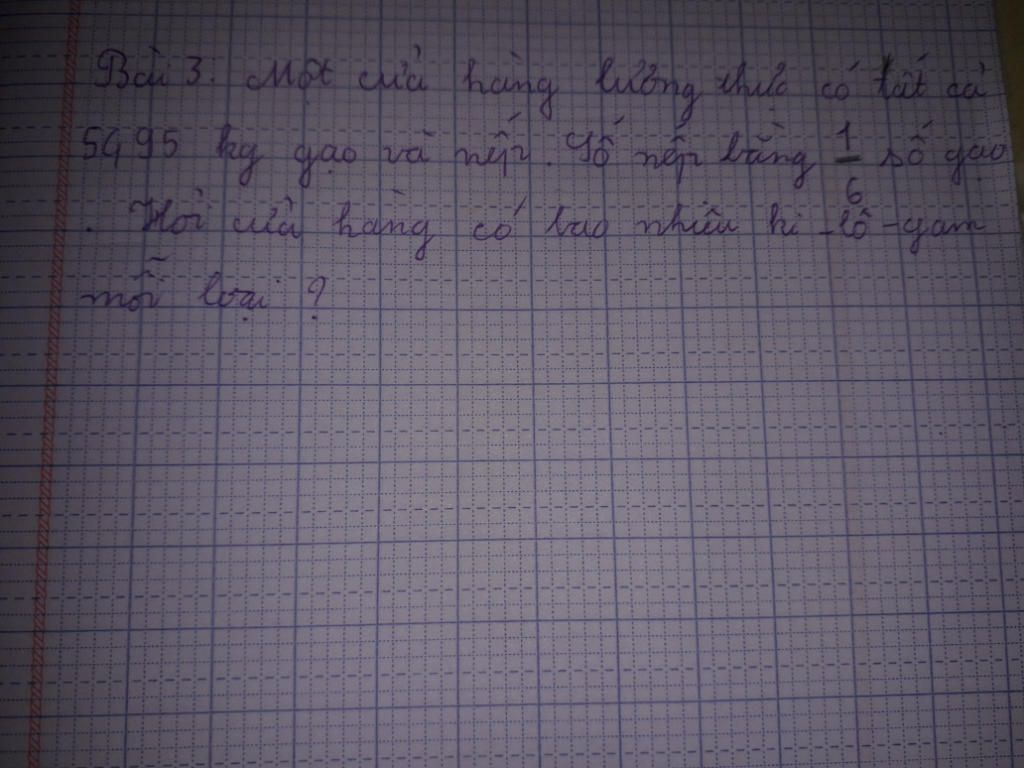 Bài 3. Một cửa hàng lương thực có tất cả
5495 kg gạo và nếp. Số nếp bằng 1/6 số gạo
. Hỏi cửa hàng có bao nhiêu ki-lô-gam
mỗi loại ?